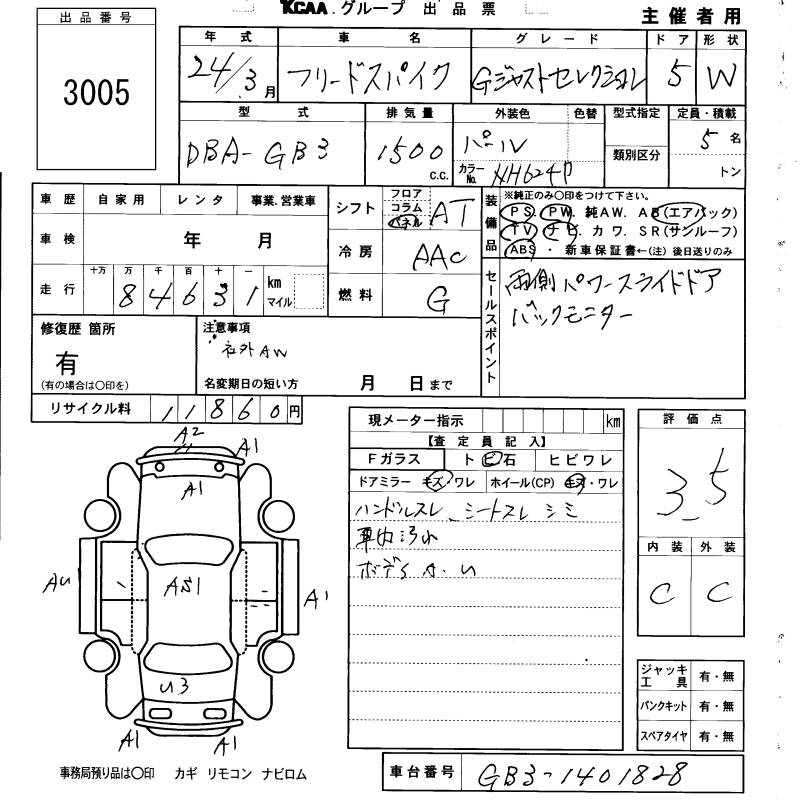 KCAA.グループ 出品票
主催者用
出品番号
3005
年式 車名 グレード ドア 形状
24/3月 フリードスパイク Gジャストセレクション 5 W
型式 排気量 外装色 色替 型式指定 定員・積載
DBA-GB3 1500 c.c. パール
カラーNo. NH624P
類別区分
5名
トン
車歴 自家用 レンタ 事業.営業車
車検 年 月
走行 十万 万 千 百 十 一
84631 km マイル
シフト フロア コラム パネル AT
冷房 AAC
燃料 G
装備品
※純正のみ〇印をつけて下さい。
PS. PW. 純AW. AB(エアバック)
TV. ナビ. カワ. SR(サンルーフ)
ABS・新車保証書←(注)後日送りのみ
セールスポイント
両側パワースライドドア
バックモニター
修復歴 箇所
有
(有の場合は〇印を)
注意事項
社外AW
名変期日の短い方 月 日まで
リサイクル料 11860円
現メーター指示 km
【査定員記入】
Fガラス トビ石 ヒビワレ
ドアミラー キズ・ワレ ホイール(CP) キズ・ワレ
ハンドルスレ シートスレ シミ
車内汚れ
ボディA・U
評価点
3.5
内装 外装
C C
ジャッキ工具 有・無
パンクキット 有・無
スペアタイヤ 有・無
A2
A1
A1
AU
AS1
A1
U3
A1
A1
事務局預り品は〇印 カギ リモコン ナビロム
車台番号 GB3-1401828